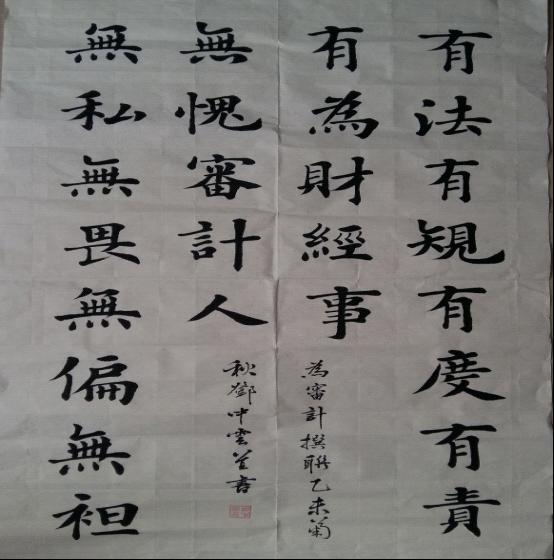 有法有規有度有責
有為財經事
無私無畏無偏無袒
無愧審計人
為審計撰聯乙未菊
秋鄧中雲並書